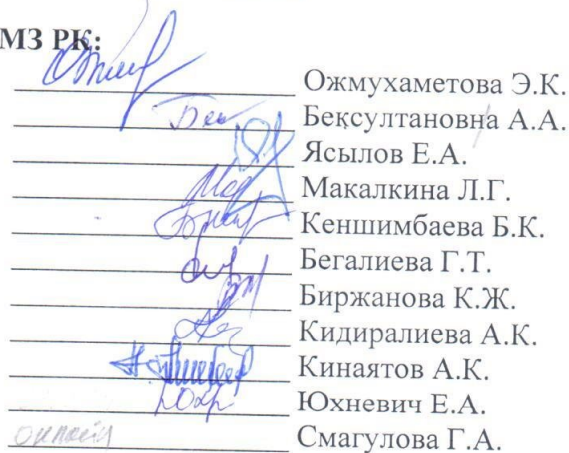 МЗ РК:
Ожмухаметова Э.К.
Бексултановна А.А.
Ясылов Е.А.
Макалкина Л.Г.
Кеншимбаева Б.К.
Бегалиева Г.Т.
Биржанова К.Ж.
Кидиралиева А.К.
Кинаятов А.К.
Юхневич Е.А.
онлайн Смагулова Г.А.